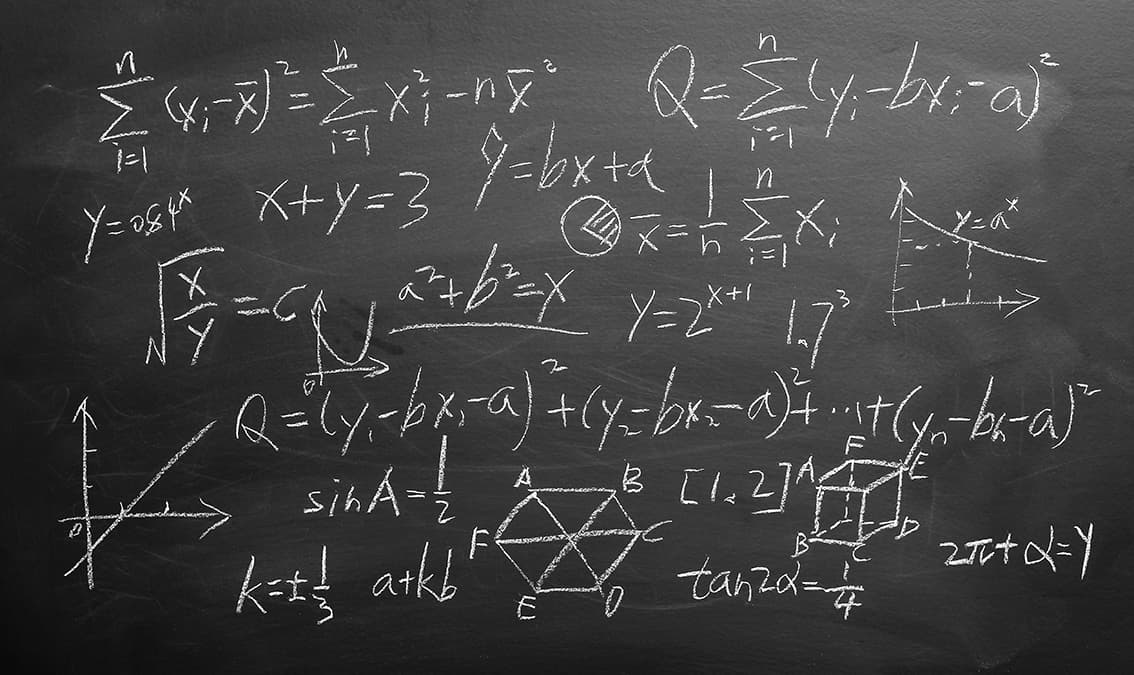 n∑i=1 (xᵢ-x̄)² = n∑i=1 xᵢ² - nx̄²
Q = n∑i=1 (yᵢ-bxᵢ-a)²
ŷ=bx+a
y=0.84ˣ
x+y=3
x̄ = 1/n n∑i=1 xᵢ
y=aˣ
√(x/y) = C
0
a²+b²=x
y=2ˣ⁺¹
1.7³
Q=(y₁-bx₁-a)²+(y₂-bx₂-a)²+...+(yₙ-bₙ-a)²
0
sinA=1/2
A B C D E F
[1,2]
A B C D E F
2π+α=y
k=±1/3
a+kb
tan2α=1/4